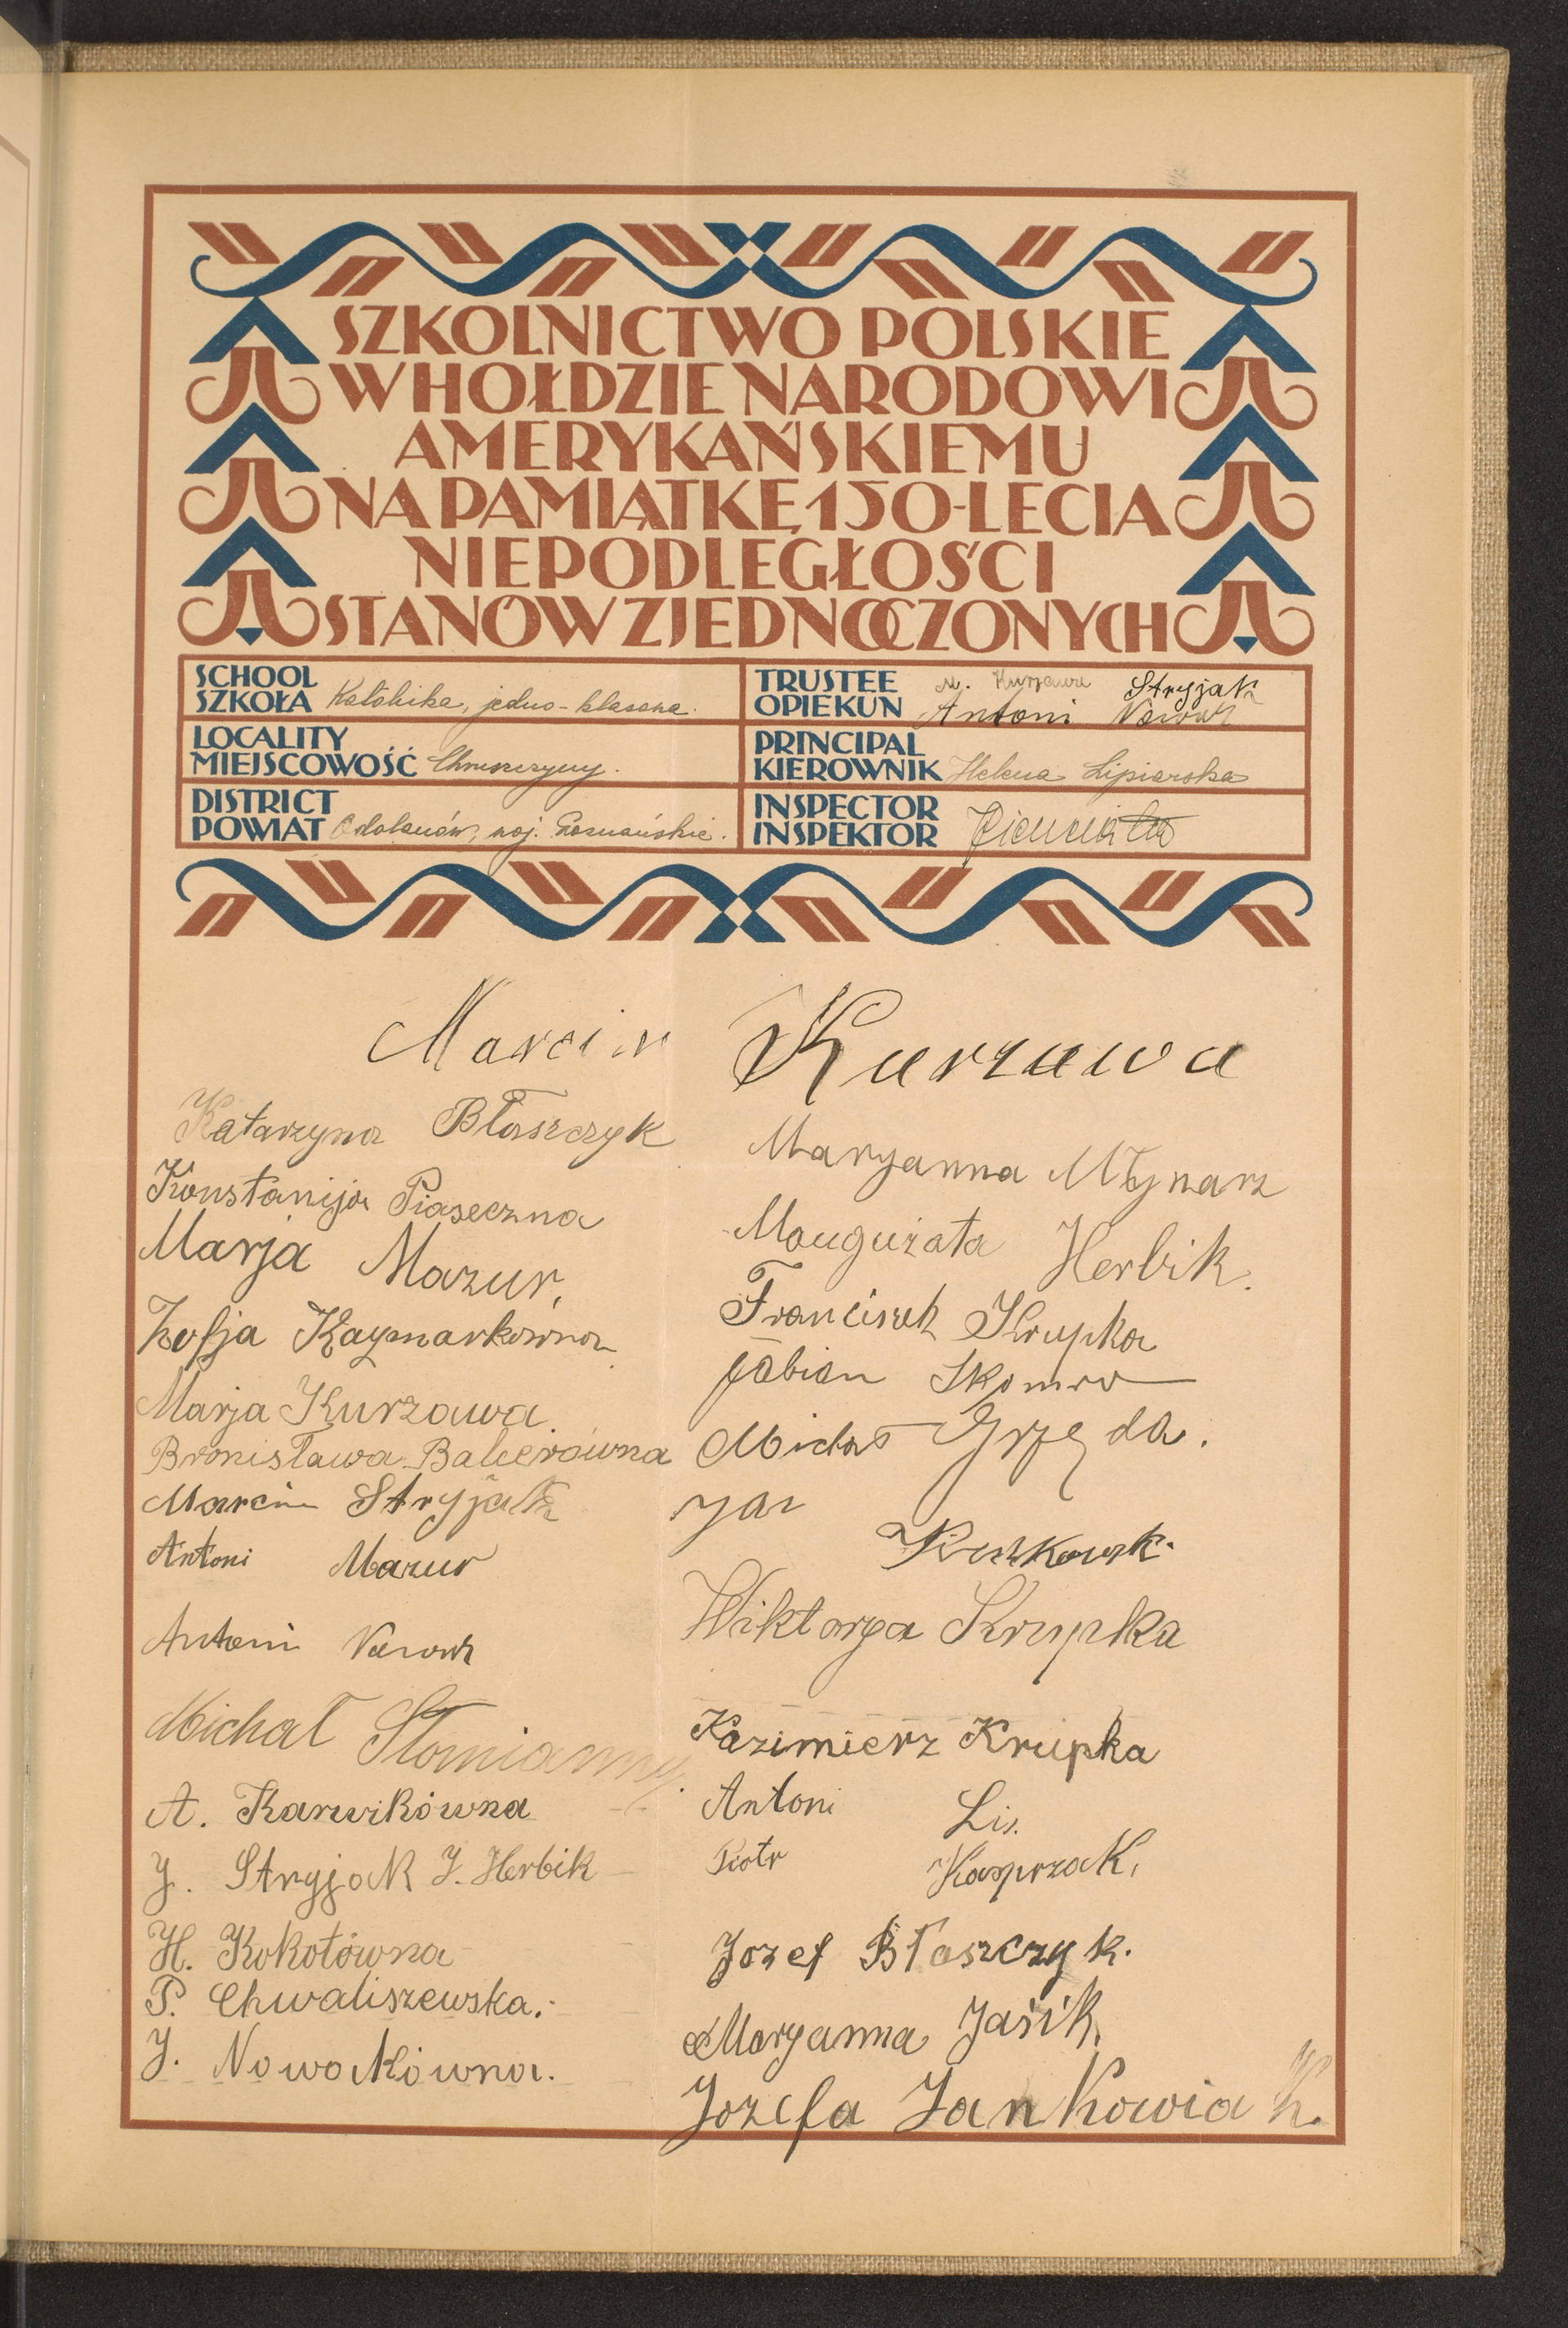 SZKOLNICTWO POLSKIE
W HOŁDZIE NARODOWI
AMERYKAŃSKIEMU
NA PAMIĄTKĘ 150-LECIA
NIEPODLEGŁOŚCI
STANÓW ZJEDNOCZONYCH
SCHOOL
SZKOŁA Katolicka, jedno-klasowa.
LOCALITY
MIEJSCOWOŚĆ Chruszczyny.
DISTRICT
POWIAT Odolanów, woj. Poznańskie.
TRUSTEE M. Kurzawa Stryjak
OPIEKUN Antoni Nowak
PRINCIPAL
KIEROWNIK Helena Lipiarska
INSPECTOR
INSPEKTOR
Marcin Kurzawa
Katarzyna Błaszczyk
Konstancja Piaseczna
Marja Mazur,
Zofja Kaymarkówna
Marja Kurzawa
Bronisława Balcerówna
Marcin Stryjak
Antoni Mazur
Antoni Nowak
Michał Słomianny.
A. Karwikówna
J. Stryjak J. Herbik
H. Kokotówna
P. Chwaliszewska.
J. Nowakówna.
Maryanna Młynarz
Małgużata Herbik.
Franciszek Krupka
Fabian Skomro
Michał Grzęda.
Jan
Wiktorya Krupka
Kazimierz Krupka
Antoni Lis.
Piotr Kasprzak,
Jozef Błaszczyk.
Maryanna Jasik.
Jozefa Jankowiak.